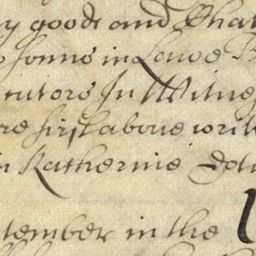 y goods and Chat
sonne in Lawe B
cutors In Witnes
re first above writ
n Katherine
tember in the